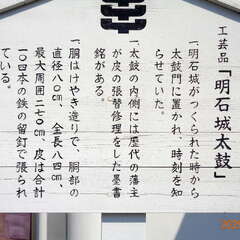 工芸品「明石城太鼓」
一明石城がつくられた時から
太鼓門に置かれ、時刻を知
らせていた。
一太鼓の内側には歴代の藩主
が皮の張替修理をした墨書
銘がある。
一胴はけやき造りで、胴部の
直径八〇cm、全長八四cm、
最大周囲二七〇cm、皮は合計
一〇四本の鉄の留釘で張られ
ている。